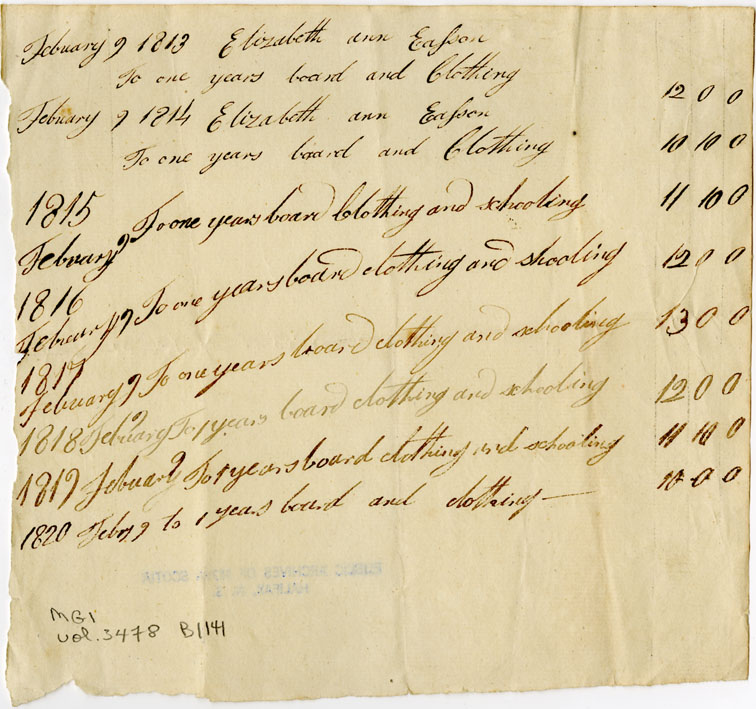 Febuary 9 1813 Elizabeth ann Easson
To one years board and Clothing 12 0 0
Febuary 9 1814 Elizabeth ann Easson
To one years board and Clothing 10 10 0
1815
Febuary 9 To one years board Clothing and schooling 11 10 0
1816
Febuary 9 To one years board clothing and shooling 12 0 0
1817
Febuary 9 To one years board clothing and schooling 13 0 0
1818 Febuary 9 To 1 years board clothing and schooling 12 0 0
1819 Febuary 9 To 1 years board clothing and schooling 11 10 0
1820 Febry 9 to 1 years board and clothing — 0 0
PUBLIC ARCHIVES OF NOVA SCOTIA
HALIFAX, N. S.
MG1
vol. 3478 B/141